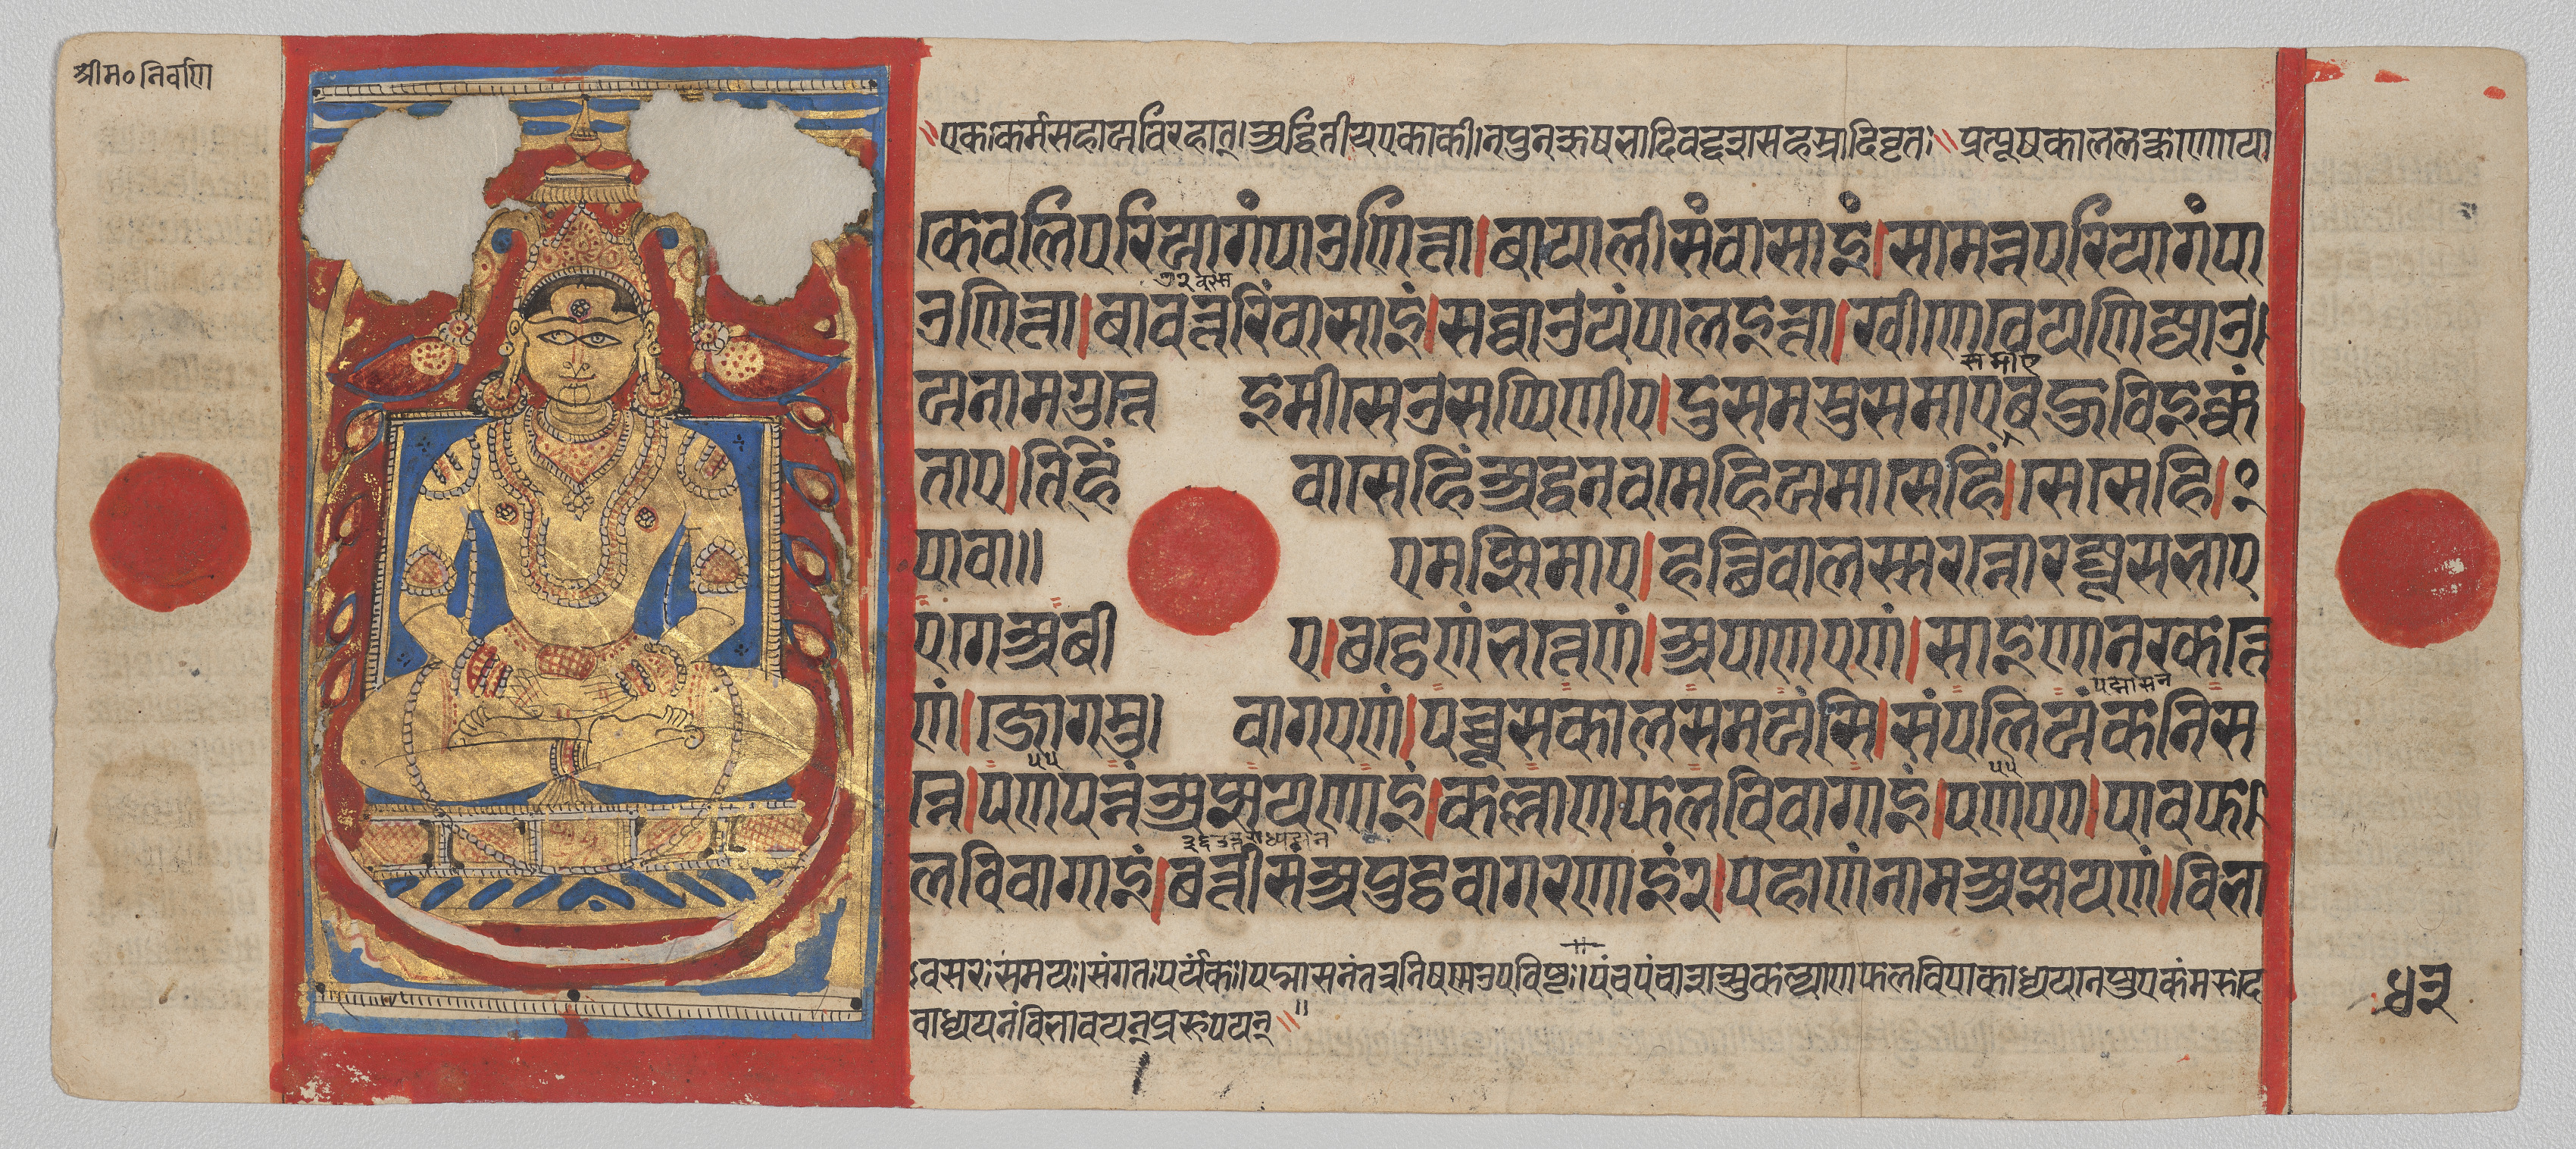 श्रीम० निर्वाण
॥एकः कर्मसहायविरहात्। अद्वितीय एकाकी। न पुनः ऋषभादिवद्दशसहस्रादिवृतः॥ प्रत्यूषकाललक्षणो यो
केवलिपरियागं पाउणित्ता। बायालीसं वासाइं। सामन्नपरियागं पा
७२ वरस
उणित्ता। बावत्तरिं वासाइं। सव्वाउयं पालइत्ता। खीणे वेयणिज्जाउ
समीए
यनामगुत्ते इमीसे उसप्पिणीए। दुसमसुसमाए बहुविइक्कं
ताए। तिहिं वासेहिं अद्धनवमेहि य मासेहिं। सेसेहि।
पावाए मज्झिमाए। हत्थिवालस्स रन्नो रज्जूसभाए
एगे अबीए। छट्ठेणं भत्तेणं। अपाणएणं। साइणा नरकत्ते
पद्मासन
णं। जोगमुवागएणं। पच्चूसकालसमयंसि। संपलियंकनिस
५५ ५५
न्ने। पणपन्नं अज्झयणाइं। कल्लाणफलविवागाइं। पणपण। पावफ
लविवागाइं। छत्तीस अपुट्ठवागरणाइं २। पहाणं नाम अज्झयणं। विभा
ऽवसरः समयः। संगतः पर्यंकः। पद्मासनं तत्र निषण्ण उपविष्टः। पंचपंचाशत्सु कल्याणफलविपाकाध्ययनेषु एकं मरुदे
वाध्ययनं विभावयन् प्ररूपयन्॥